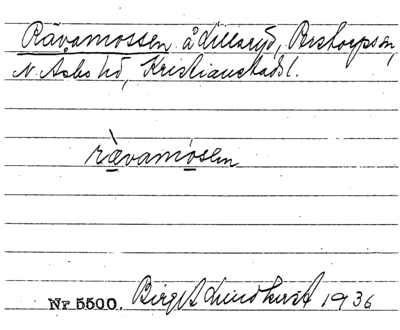 Rävamossen å Lillaryd, Perstorps sn,
N. Åsbo hd, Kristianstads l.
rævamósen
Nr 5500. Birgit Lundkvist 1936